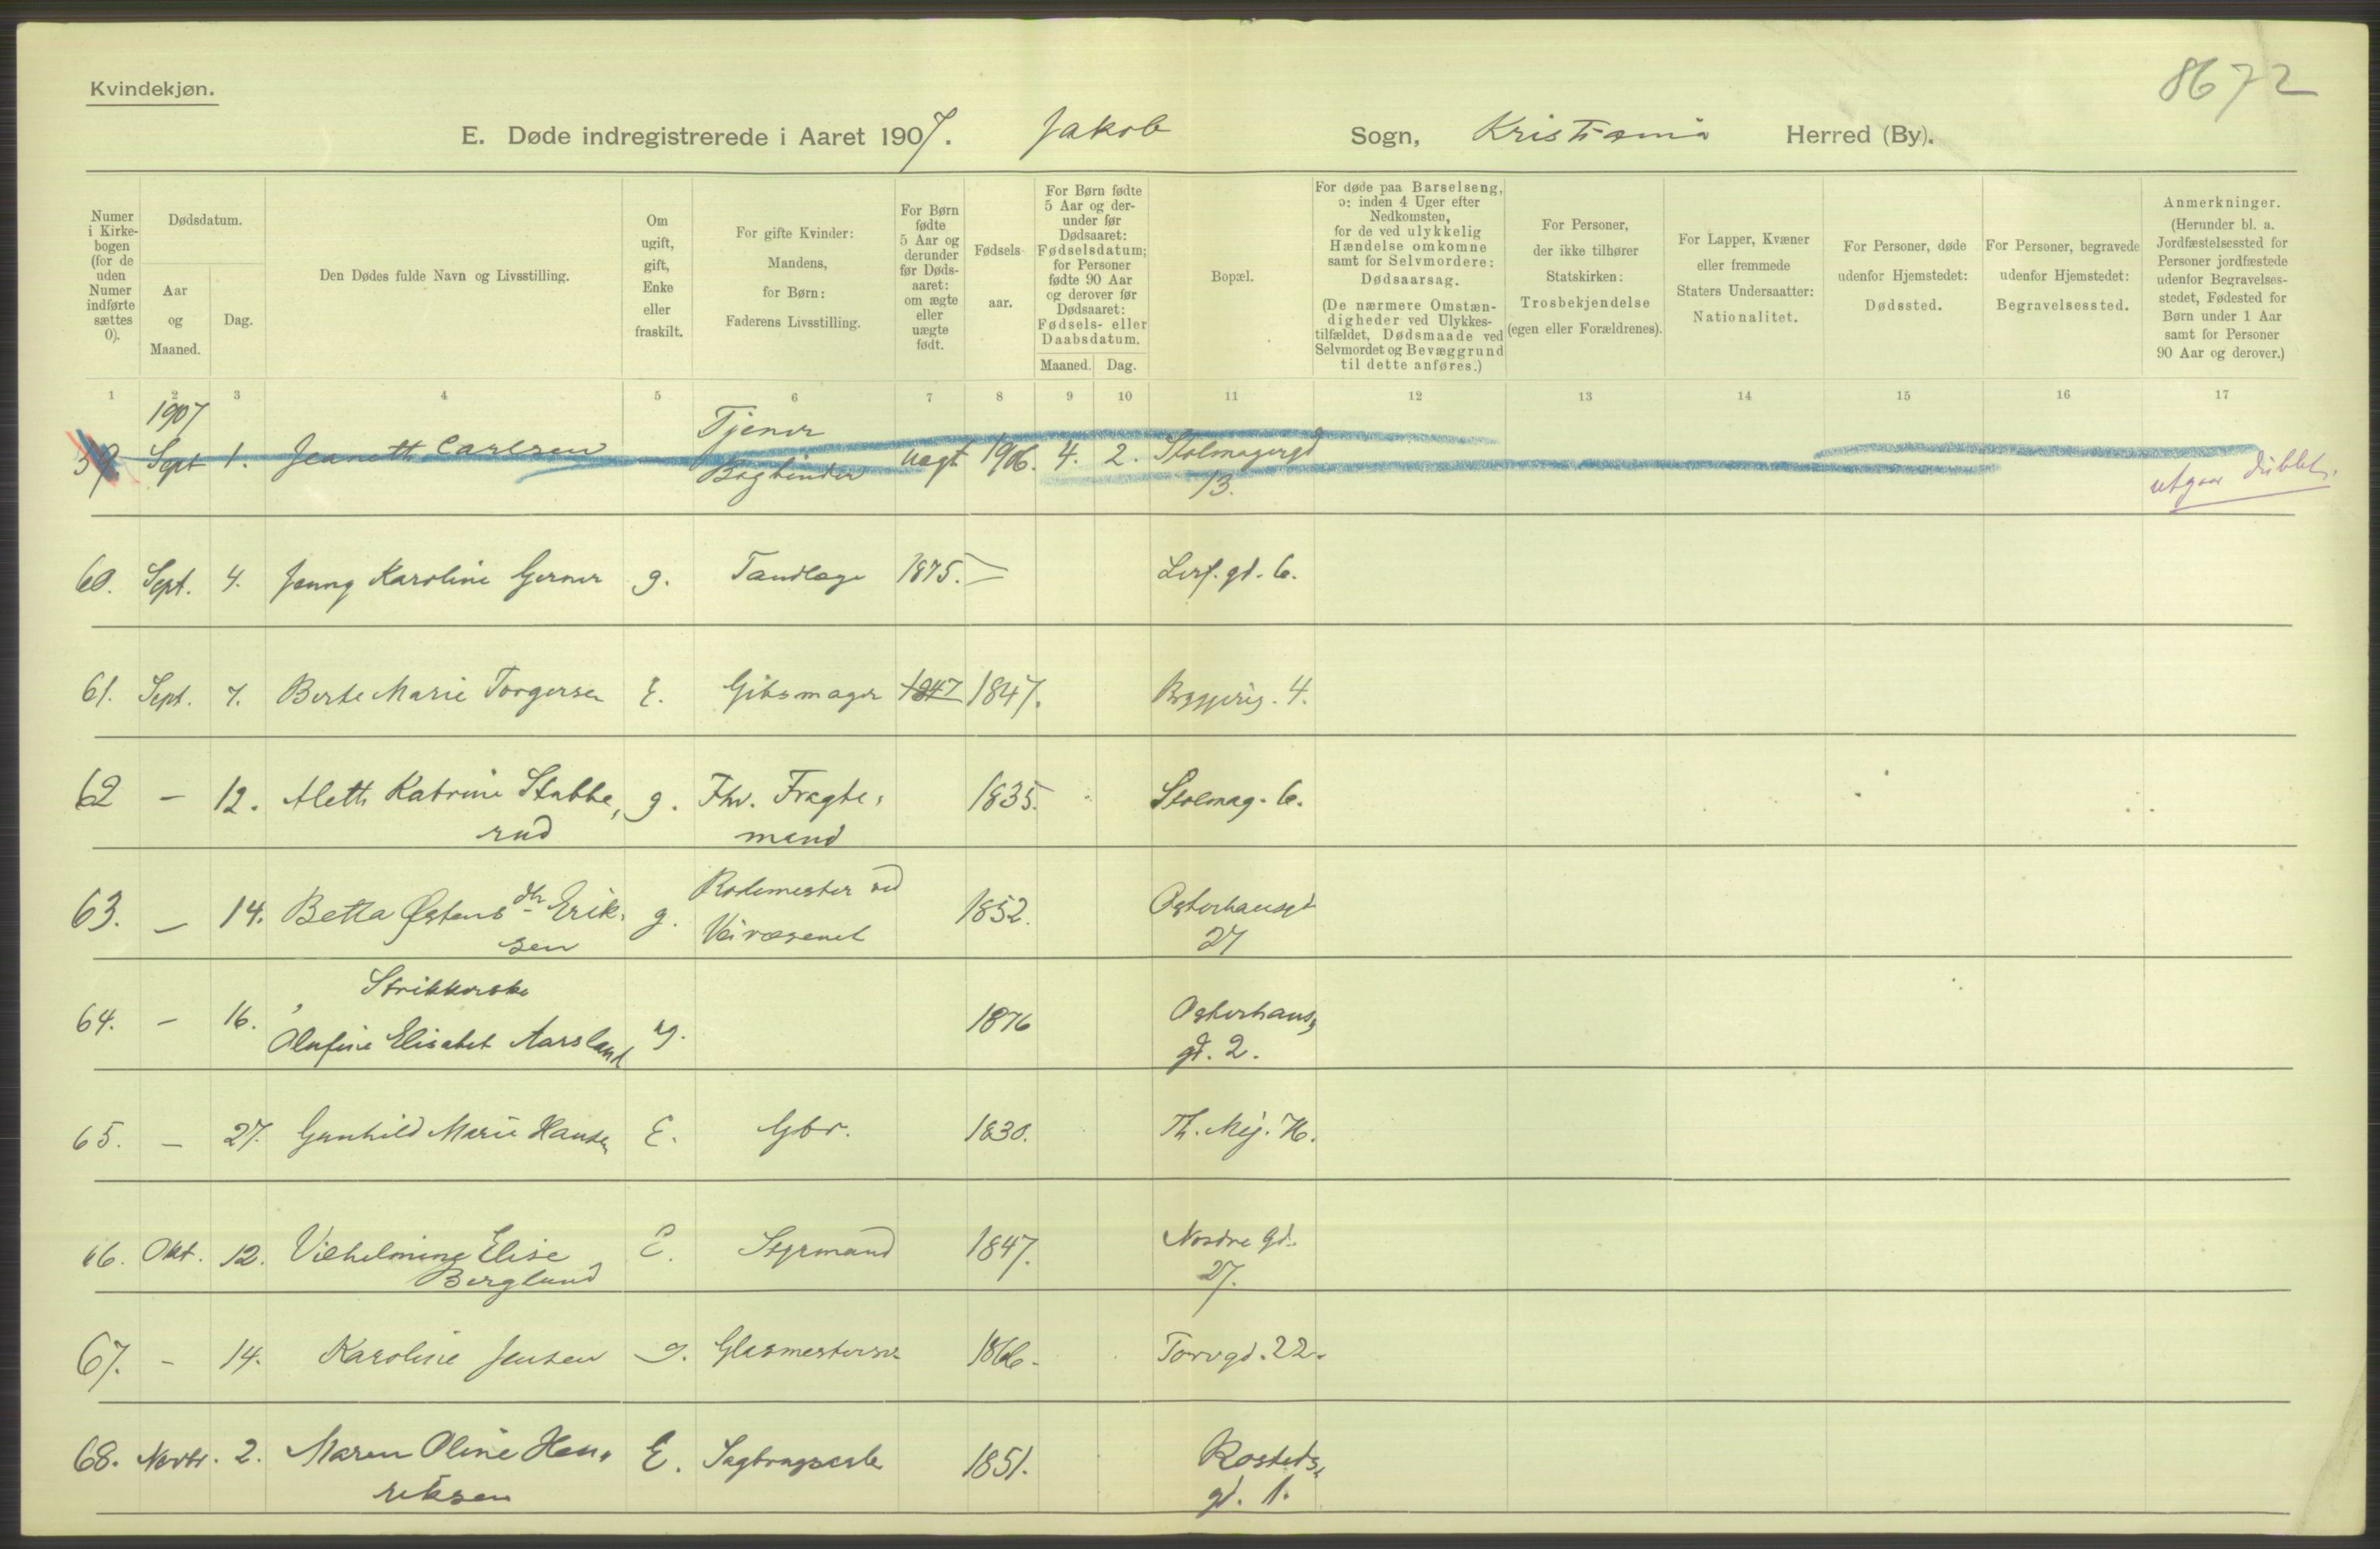 8672
Kvindekjøn.
E. Døde indregistrerede i Aaret 1907. Jakob Sogn, Kristiania Herred (By).
Numer i Kirkebogen (for de uden Numer indførte sættes 0).
Dødsdatum.
Aar og Maaned.
Dag.
Den Dødes fulde Navn og Livsstilling.
Om ugift, gift, Enke eller fraskilt.
For gifte Kvinder: Mandens, for Børn: Faderens Livsstilling.
For Børn fødte 5 Aar og derunder før Dødsaaret: om ægte eller uægte født.
Fødselsaar.
For Børn fødte 5 Aar og derunder før Dødsaaret: Fødselsdatum; for Personer fødte 90 Aar og derover før Dødsaaret: Fødsels- eller Daabsdatum.
Maaned. Dag.
Bopæl.
For døde paa Barselseng, ɔ: inden 4 Uger efter Nedkomsten, for de ved ulykkelig Hændelse omkomne samt for Selvmordere: Dødsaarsag.
(De nærmere Omstændigheder ved Ulykkestilfældet, Dødsmaade ved Selvmordet og Bevæggrund til dette anføres.)
For Personer, der ikke tilhører Statskirken: Trosbekjendelse (egen eller Forældrenes).
For Lapper, Kvæner eller fremmede Staters Undersaatter: Nationalitet.
For Personer, døde udenfor Hjemstedet: Dødssted.
For Personer, begravede udenfor Hjemstedet: Begravelsessted.
Anmerkninger.
(Herunder bl. a. Jordfæstelsessted for Personer jordfæstede udenfor Begravelsesstedet, Fødested for Børn under 1 Aar samt for Personer 90 Aar og derover.)
1 2 3 4 5 6 7 8 9 10 11 12 13 14 15 16 17
1907
Tjener
59. Sept 1. Jeanette Carlsen Bogbinder uægt 1906. 4. 2. Stolmagergd
13.
utgaar dublet.
60. Sept. 4. Jenny Karoline Gerner g. Tandlæge 1875. — gd. 6.
61. Sept. 7. Berte Marie Torgersen E. Gibsmager 1847 1847. Bryggerig. 4.
62 — 12. Alette Katrine Stubbe, g. Fhv. Fragte, 1835. Stolmag. 6.
rud mand
63. — 14. Betta Østens dtr Erik, g. Rodemester ved 1852. Osterhausgd
sen Veivæsenet 27
Strikkerske
64. — 16. Olufine Elisabet Aarsland ug. 1876 Osterhaus,
gd. 2.
65. — 27. Gunhild Marie Hansen E. Gbr. 1830. Th. Mej.
66. Okt. 12. Vilhelmine Elise E. Styrmand 1847. Nordre Gd.
Berglund 27.
67. — 14. Karoline Jensen g. Glasmestersv 1866. Torvgd. 22.
68. Novbr. 2. Maren Oline Hen, E. Sagbrugsarb 1851. Rosteds,
riksen gd. 1.